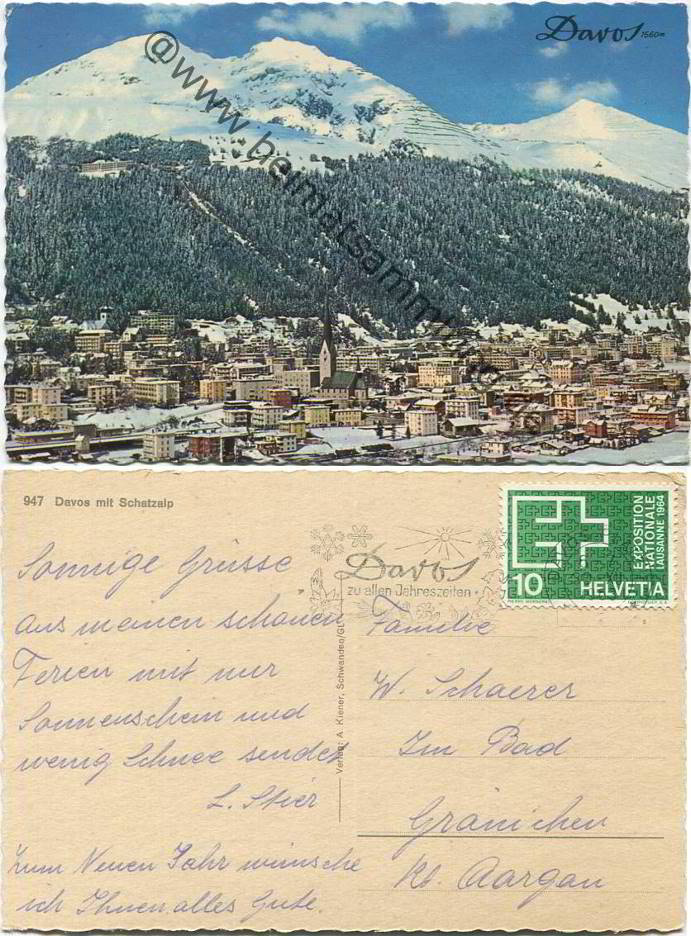 Davos 1560m
@www.heimatsamm
947 Davos mit Schatzalp
Sonnige Grüsse
aus meinen schönen
Ferien mit nur
Sonnenschein und
wenig Schnee sendet
L. Stier
Zum Neuen Jahr wünsche
ich Ihnen alles Gute.
Verlag: A. Kiener, Schwanden/Gl.
Davos
zu allen Jahreszeiten
EXPOSITION
NATIONALE
LAUSANNE 1964
10 HELVETIA
Familie
W. Schaerer
Im Bad
Gränichen
Kt. Aargau